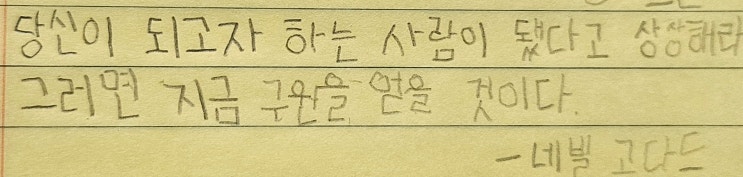 당신이 되고자 하는 사람이 됐다고 상상해라
그러면 지금 구원을 얻을 것이다.
- 네빌 고다드